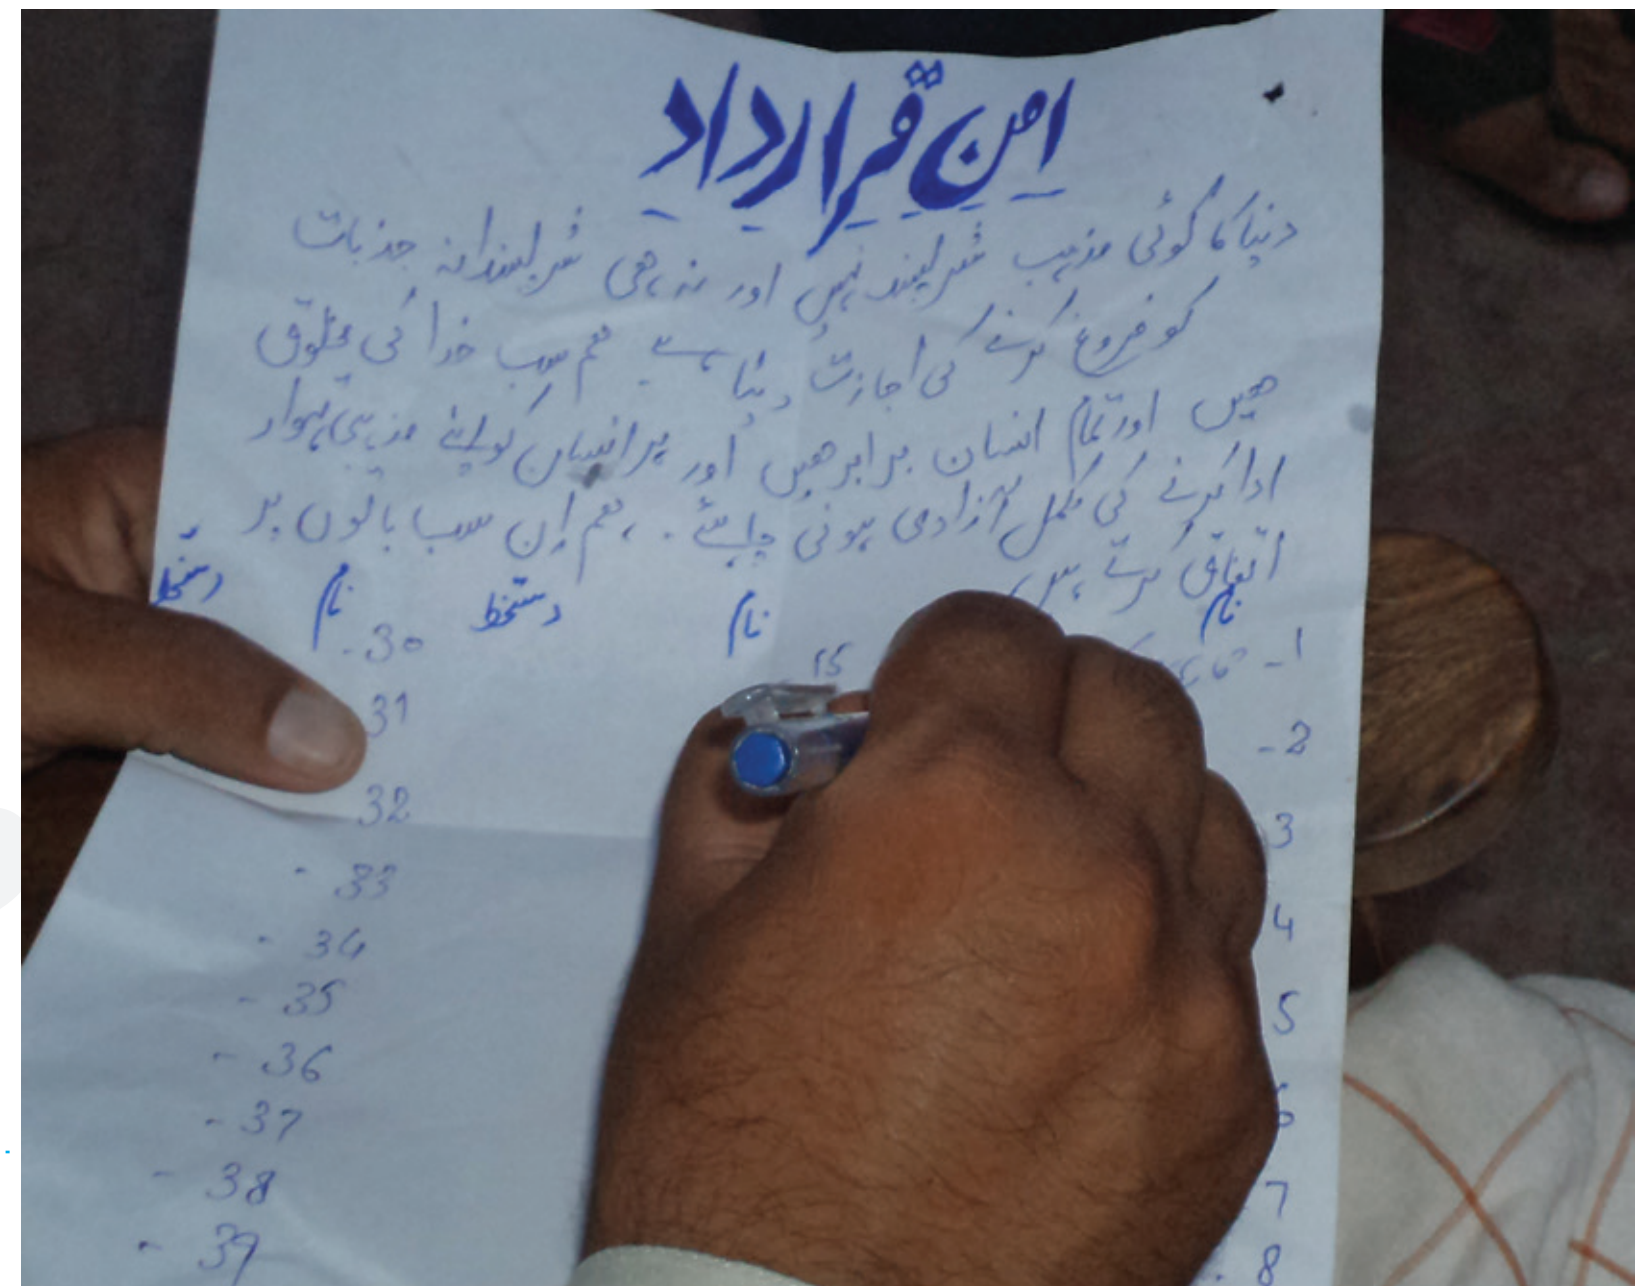 امن قرارداد
دنیا کا کوئی مذہب شرپسند نہیں اور نہ ھی شرپسندانہ جذبات
کو فروغ کرنے کی اجازت دیتا ہے ھم سب خدا کی مخلوق
ھیں اور تمام انسان برابر ھیں اور ہر انسان کو اپنے مذہبی تہوار
ادا کرنے کی مکمل آزادی ہونی چاہئے . ھم اِن سب باتوں پر
اتفاق کرتے ہیں
نام نام دستخط نام دستخط
1-
15
30 -
2-
31
3
32
4
33 -
5
34 -
6
35 -
7
36 -
8
37 -
38 -
39 -